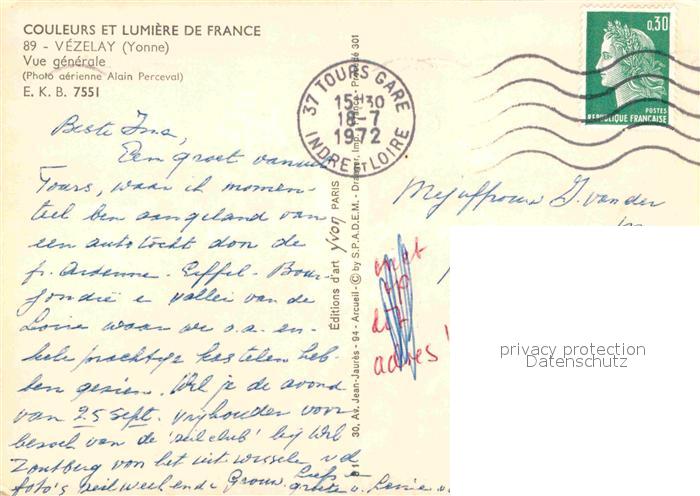 COULEURS ET LUMIÈRE DE FRANCE
89 - VÉZELAY (Yonne)
Vue générale
(Photo aérienne Alain Perceval)
E. K. B. 7551
Beste Ina,
Een groet vanuit
Tours, waar ik momen-
teel ben aangeland van
een autotocht door de
fr. Ardenne - Eiffel - Bour-
gondië e vallei van de
Loire waar we o.a. en-
kele prachtige kastelen heb-
ben gezien. Wil je de avond
van 25 Sept. vrijhouden voor
bezoek van de 'zeilclub' bij Wil
Zontberg von het uit wisselen v.d
foto's zeilweekende Grouw. Liefs
groete v. Lenie v.
Editions d'art yvon PARIS
30, Av. Jean-Jaurès - 94 - Arcueil - © by S.P.A.D.E.M. - Draeger, Imp., France - Dépose 301
37 TOURS GARE
15H30
18-7
1972
INDRE ET LOIRE
0,30
POSTES
RÉPUBLIQUE FRANÇAISE
Mejuffrouw I. van der
dit
adres!
privacy protection
Datenschutz